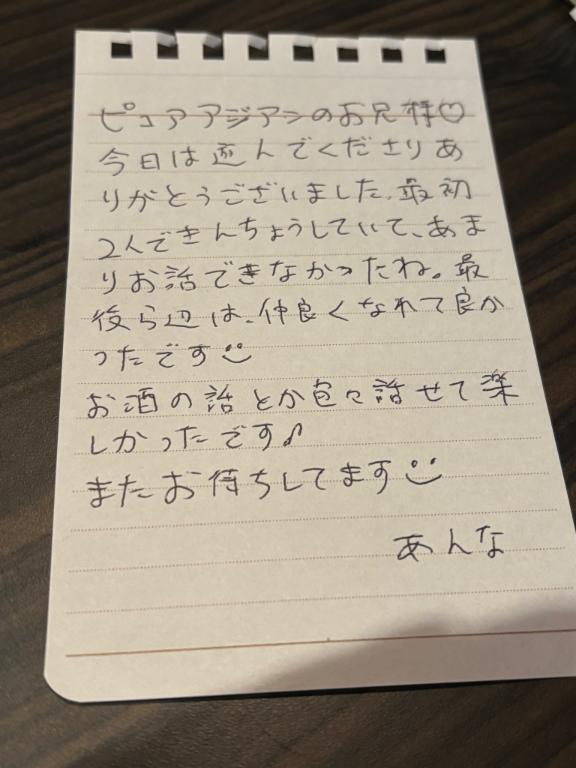 ピュアアジアンのお兄様♡
今日は選んでくださりあ
りがとうございました、最初
2人できんちょうしていて、あま
りお話できなかったね。最
後ら辺は、仲良くなれて良か
ったです☺
お酒の話とか色々話せて楽
しかったです♪
またお待ちしてます☺
あんな